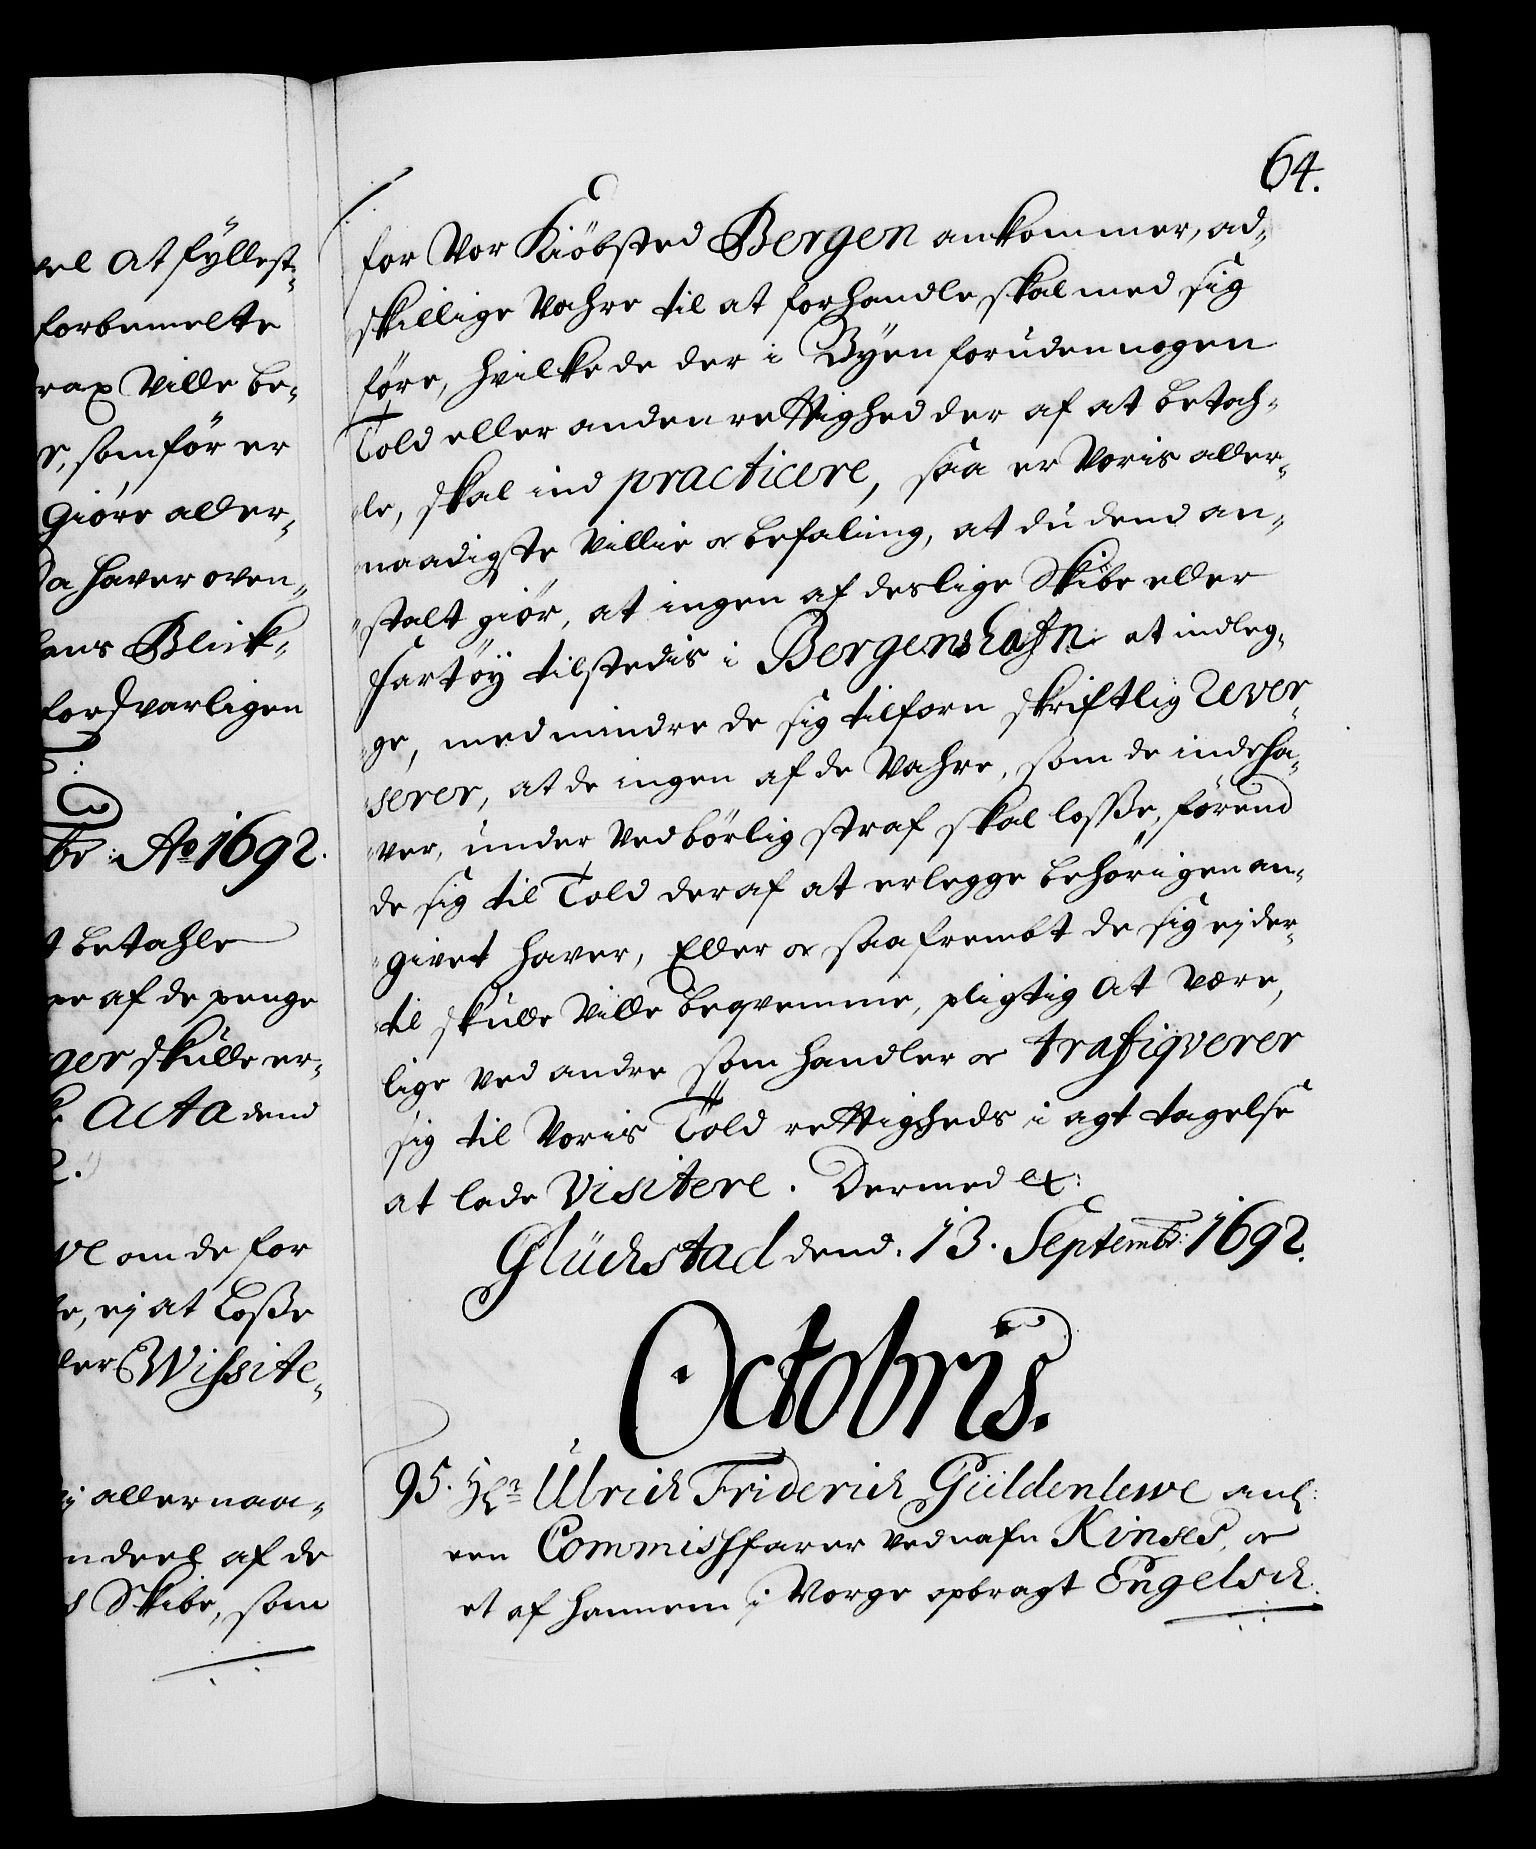 vel at fyllest-
forbemelte
rax ville be-
r, som för er
giöre aller-
da haver oven-
ans Blick-
forsvarligen
br: Ao 1692.
t betahle
re af de penge
ger skulle er-
Acta dend
2.
ve om de for
te, ej at losse
ller Wissite-
ij allernaa-
ndeel af de
s Skibe, som
64.
for Vor Kiöbsted Bergen ankommer, ad-
skillige Vahre til at forhandle skal med sig
före, hvilke de der i Byen foruden nogen
Told eller anden rettighed der af at betah-
le, skal ind practicere, saa er Voris aller-
naadigste Villie oc befaling, at du dend an-
stalt giör, at ingen af deslige Skibe eller
Fartöy tilstedis i Bergens Hafn at indleg-
ge, med mindre de sig tilforn skriftlig Rever-
serer, at de ingen af de Vahre, som de indeha-
ver, under Vedbörlig straf skal losse, förend
de sig til Told deraf at erlegge behörigen an-
givet haver, Eller oc saafrembt de sig ej der-
til skulle Ville beqvemme, pligtig at være,
lige ved andre som handler oc trafiqverer
sig til Voris Told rettigheds i agt tagelse
at lade Visitere. Dermed etc:
Glückstad dend. 13. Septembr: 1692.
Octobris.
95. Hr Ulrich Friderich Güldenlewe anl:
een Commissfarer ved nafn Kinses, oc
et af hannem i Norge opbragt Engelsch